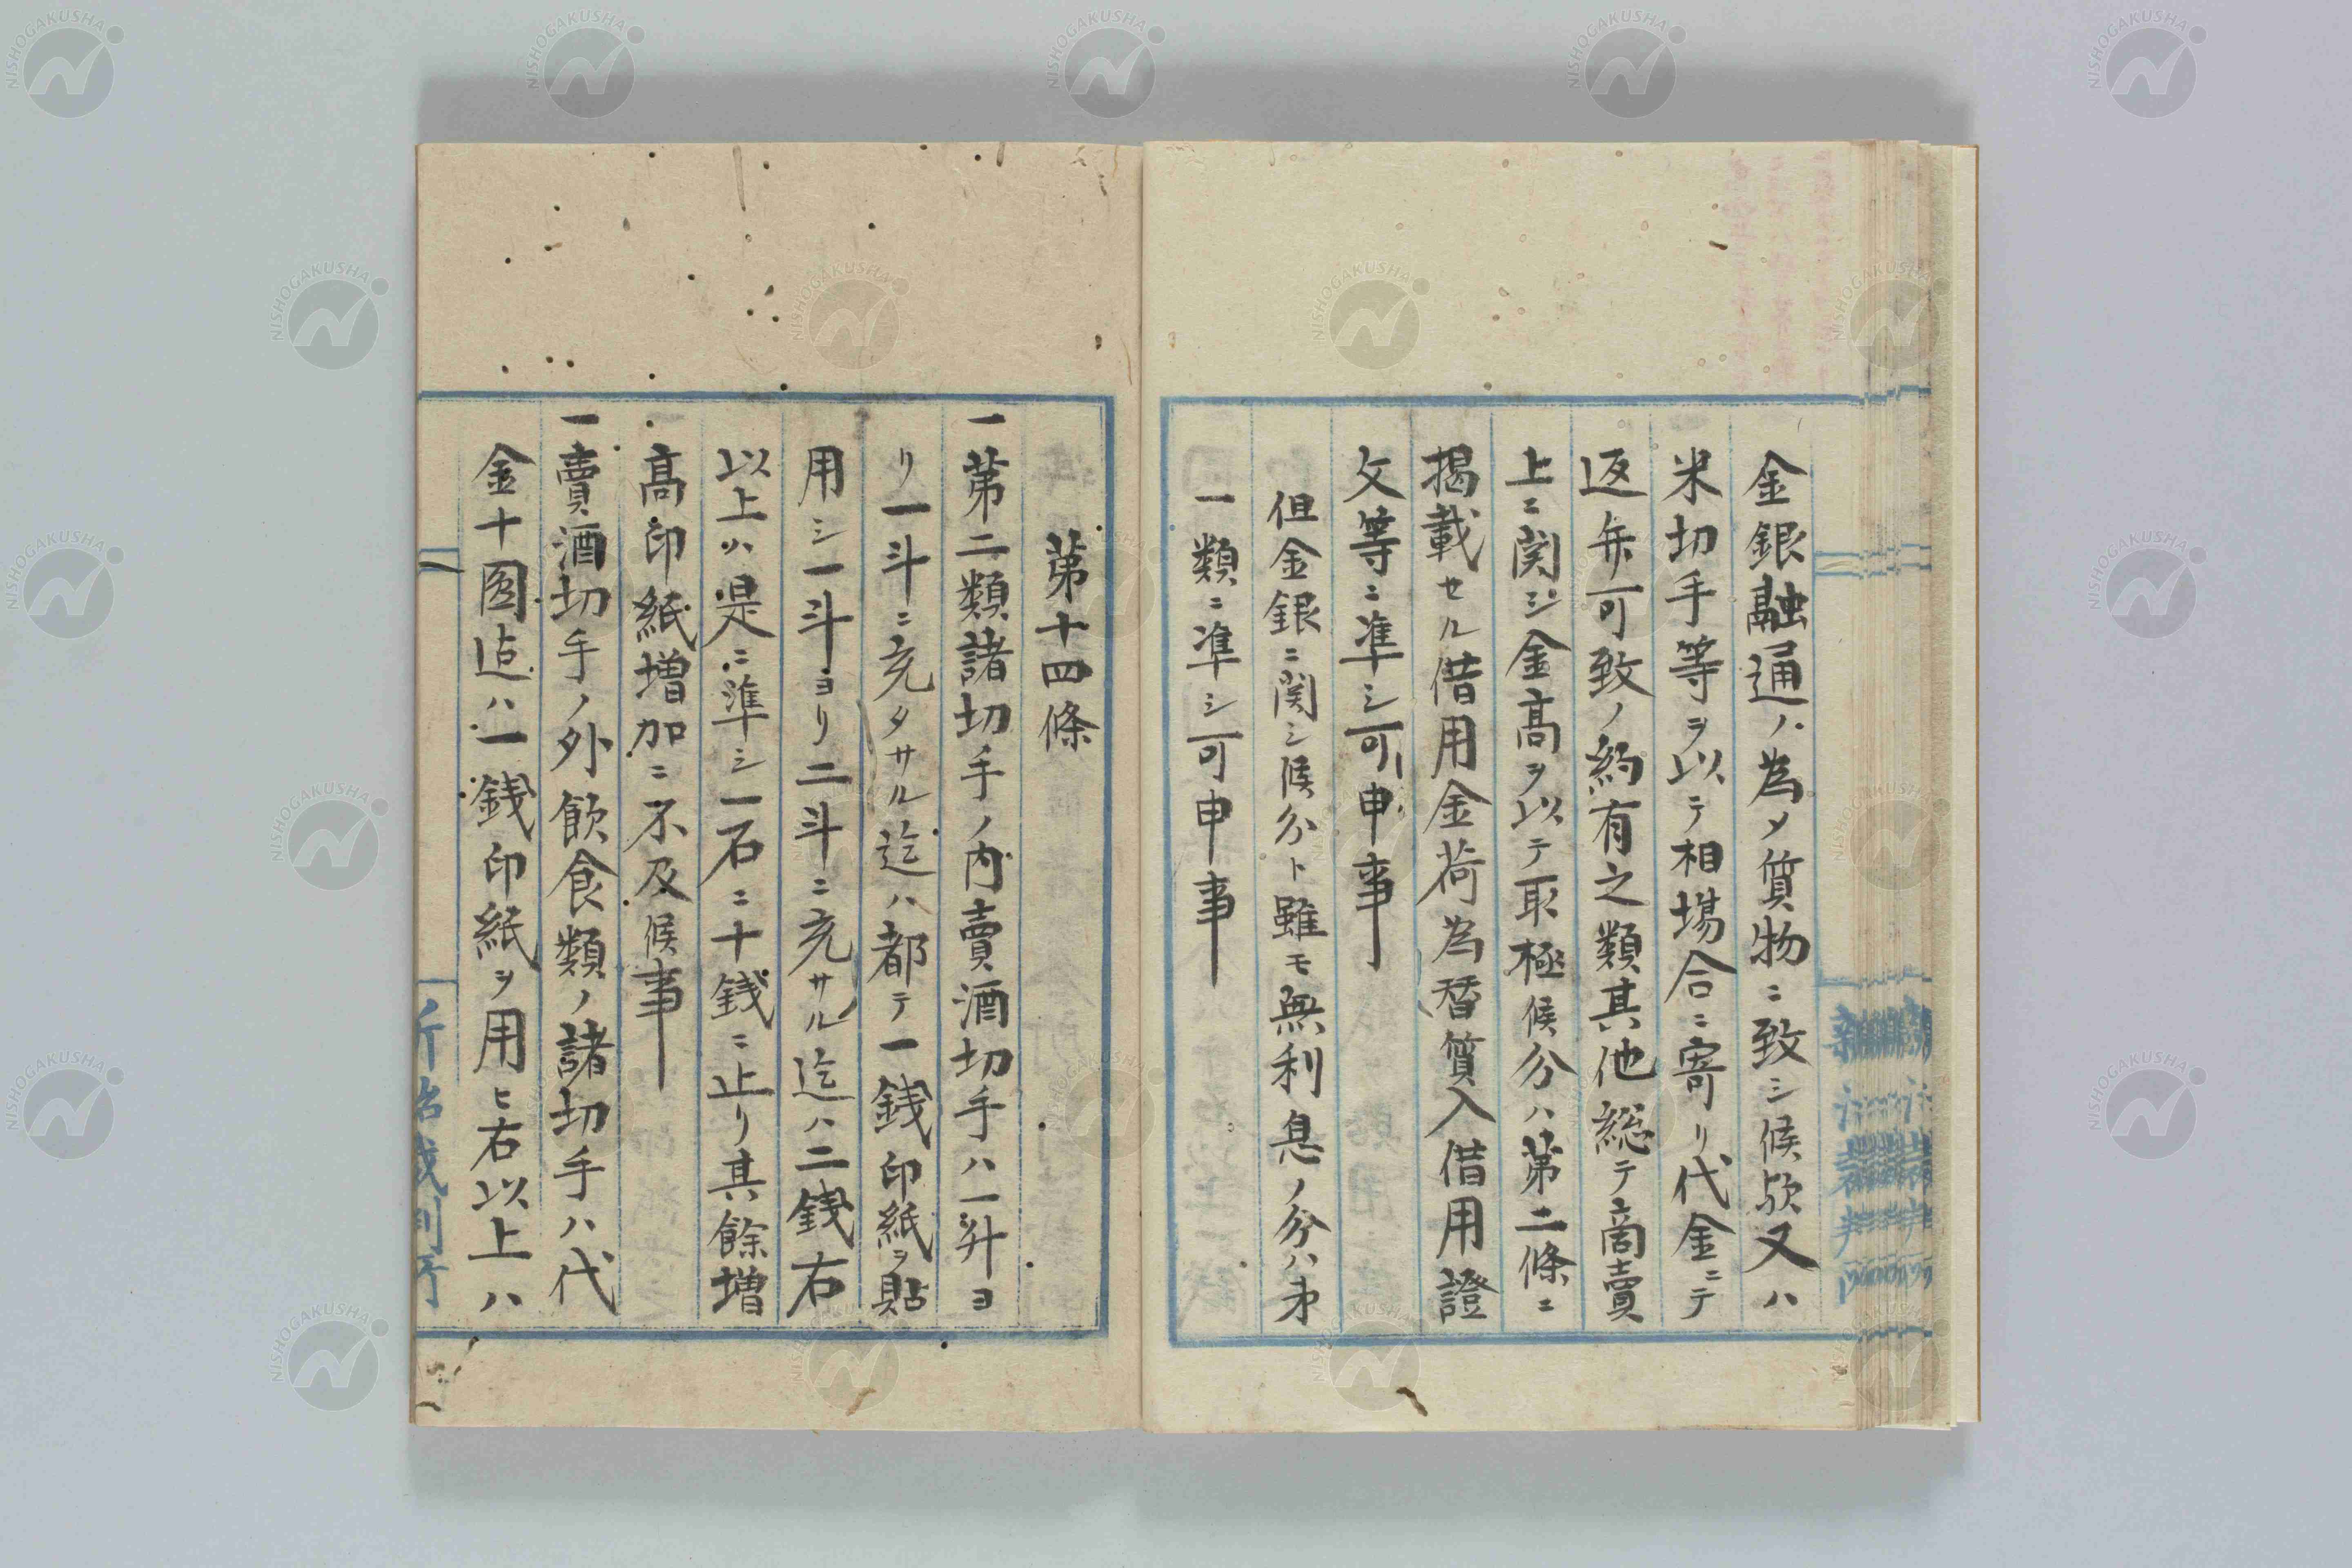 金銀融通ノ為メ質物ニ致シ候欤又ハ
米切手等ヲ以テ相場合ニ寄リ代金ニテ
返弁可致ノ約有之類其他総テ商賣
上ニ関シ金高ヲ以テ取極候分ハ第二條ニ
掲載セル借用金荷為替質入借用證
文等ニ準シ可申事
但金銀ニ関シ候分ト雖モ無利息ノ分ハ第
一類ニ準シ可申事
第十四條
一第二類諸切手ノ内賣酒切手ハ一升ヨ
リ一斗ニ充タサル迄ハ都テ一銭印紙ヲ貼
用シ一斗ヨリ二斗ニ充サル迄ハ二銭右
以上ハ是ニ準シ一石ニ十銭ニ止リ其餘増
高印紙増加ニ不及候事
一賣酒切手ノ外飲食類ノ諸切手ハ代
金十圓迄ハ一銭印紙ヲ用ヒ右以上ハ
NISHOGAKUSHA